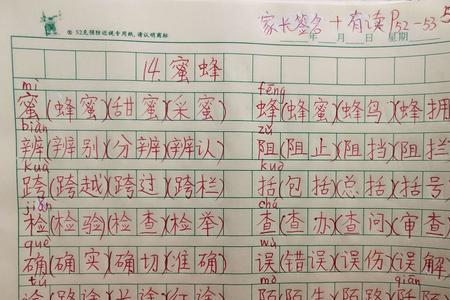 家长签名 + 有读P52-53
⑧ 52克预防近视专用纸,请认明商标 年 月 日 星期
14.蜜蜂
mì fēng
蜜(蜂蜜)(甜蜜)(采蜜) 蜂(蜂蜜)(蜂鸟)(蜂拥
biàn zǔ
辨(辨别)(分辨)(辨认) 阻(阻止)(阻挡)(阻拦
kuà kuò
跨(跨越)(跨过)(跨栏) 括(包括)(总括)(括号
jiǎn chá
检(检验)(检查)(检举) 查(查办)(查问)(审查
què wù
确(确实)(确切)(准确) 误(错误)(误伤)(误解
mò qiān